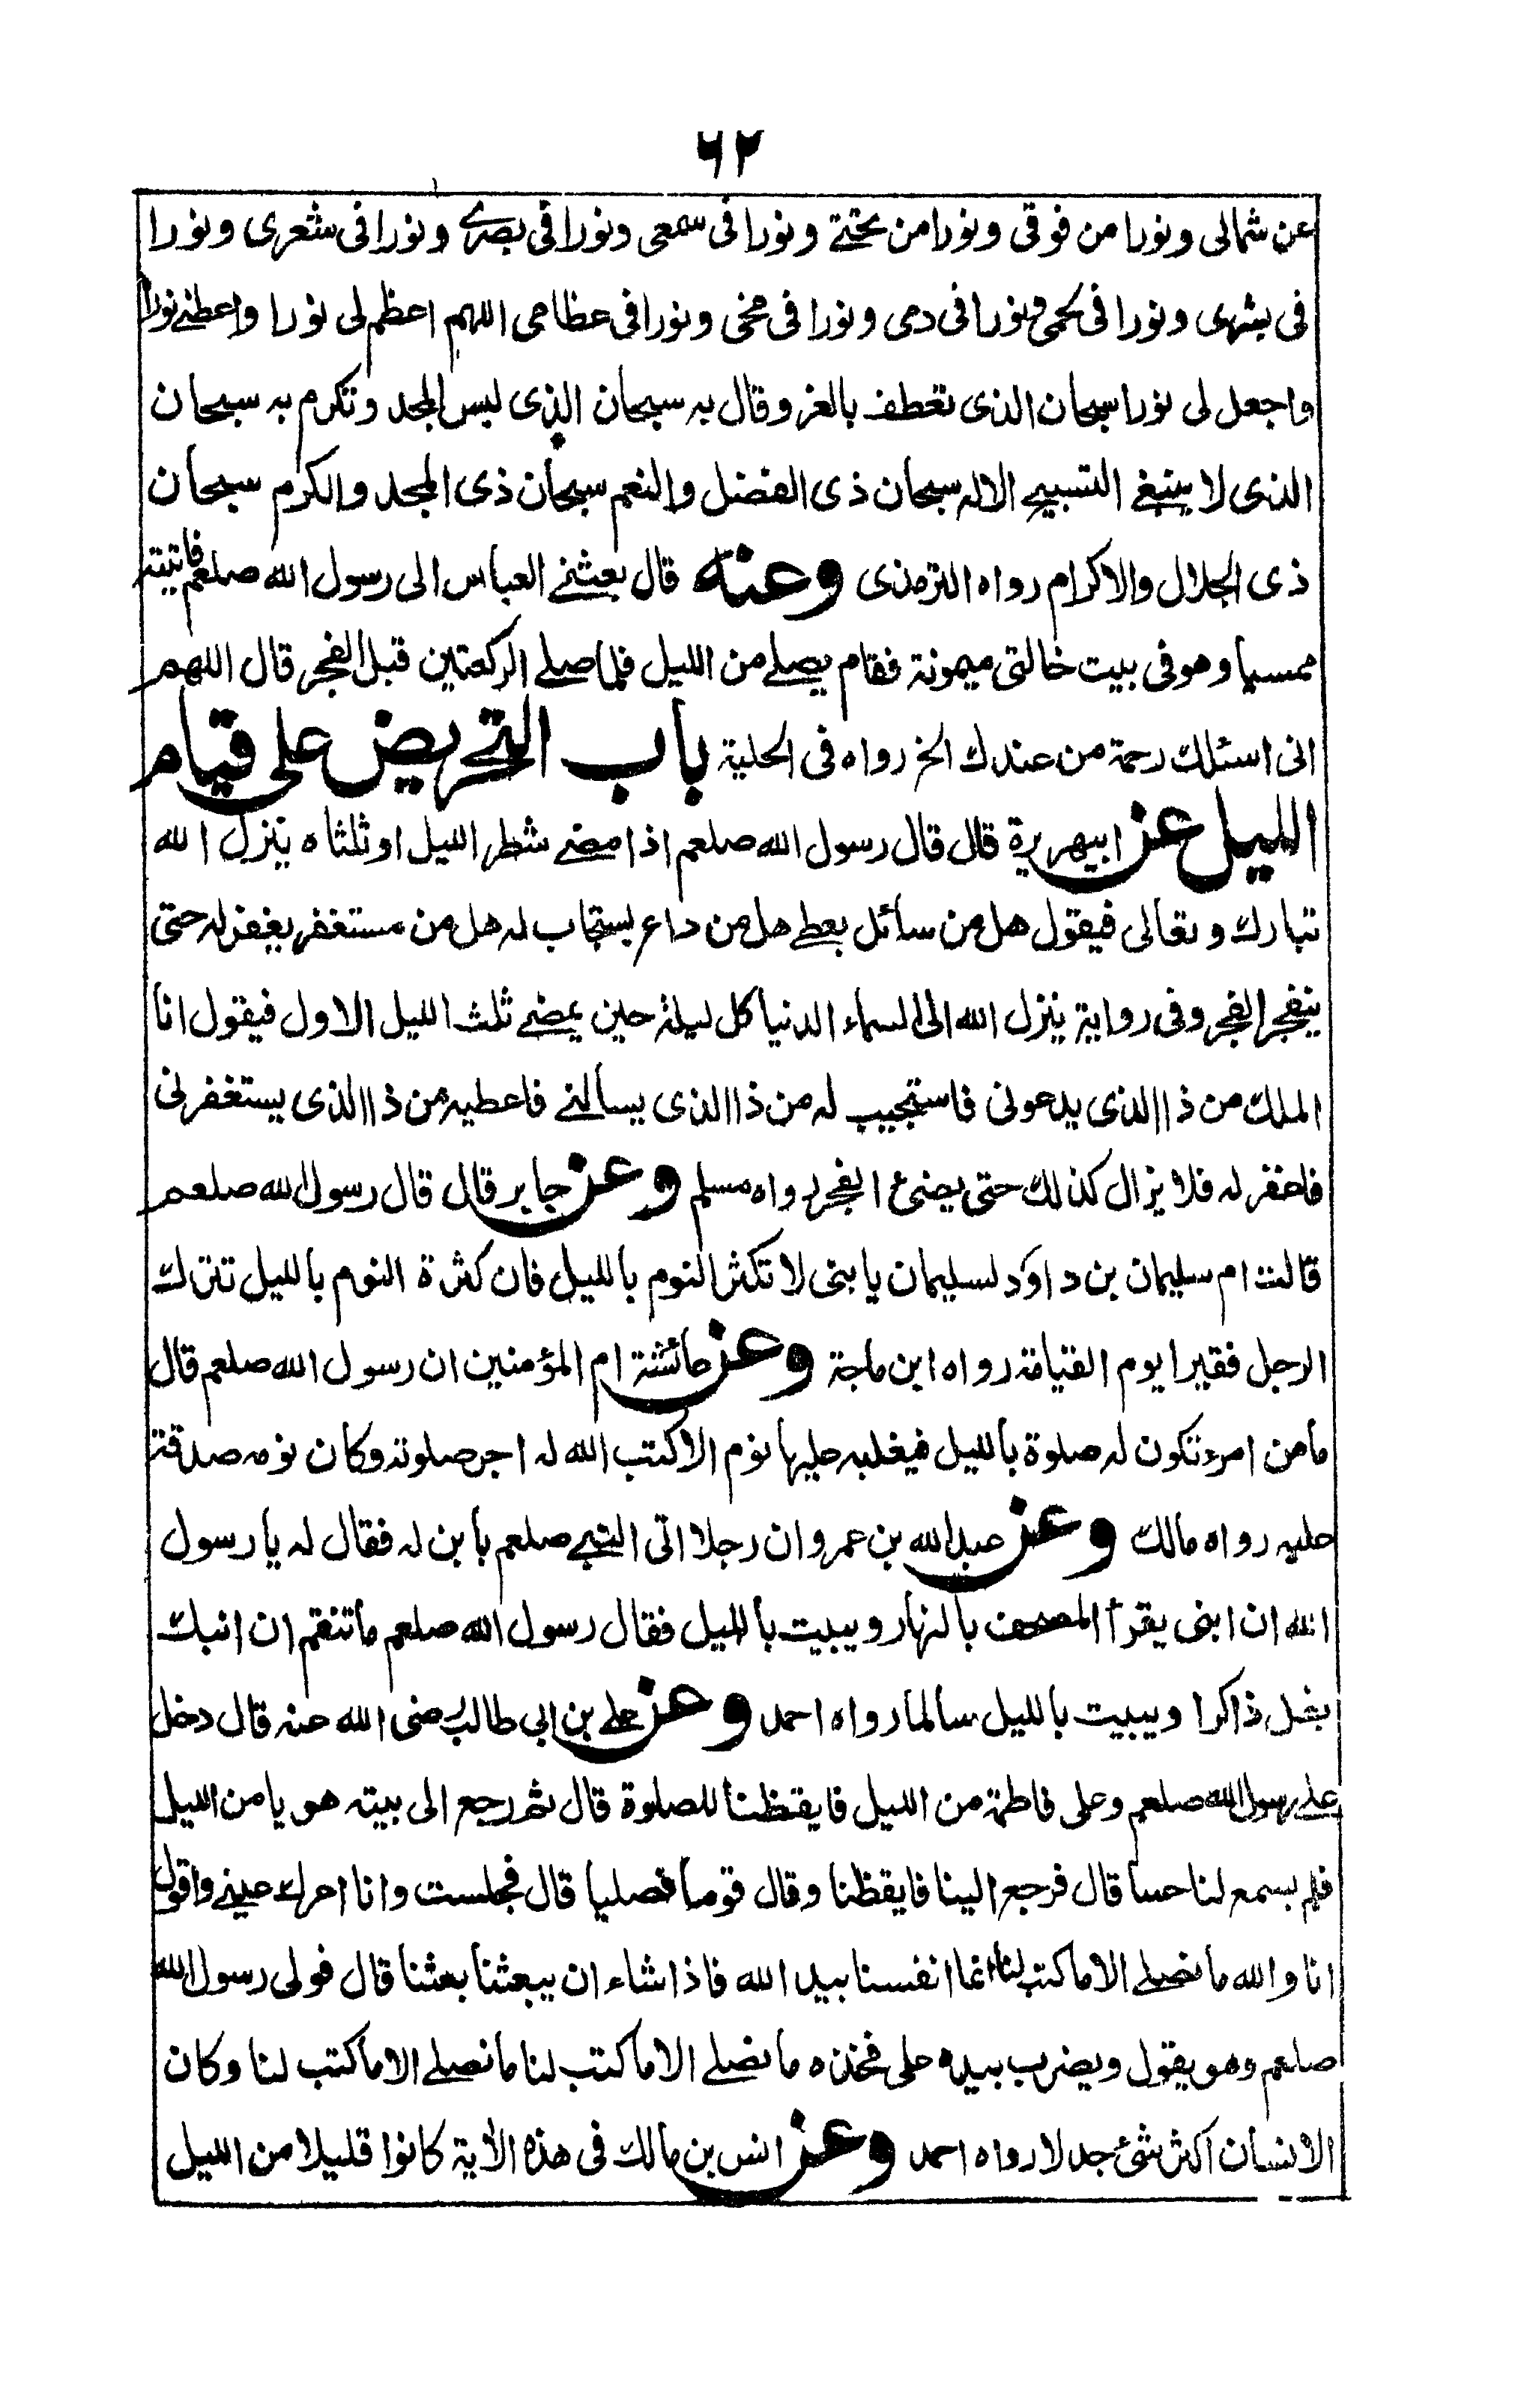 ٦٢
عن شمالى ونورا من فوقى ونورا من تحتے ونورا فى سمعى ونورا فى بصرے ونورا فى شعرى ونورا
فى بشرى ونورا فى لحمى ونورا فى دمى ونورا فى مخى ونورا فى عظامى اللهم اعظم لى نورا واعطنے نورا
واجعل لى نورا سبحان الذى تعطف بالعز وقال به سبحان الذى لبس المجد وتكرم به سبحان
الذى لا ينبغے التسبيح الا له سبحان ذى الفضل والنعم سبحان ذى المجد والكرم سبحان
ذى الجلال والاكرام رواه الترمذى وعنه قال بعثنے العباس الى رسول الله صلعم فاتيته
ممسيا وهو فى بيت خالتى ميمونة فقام يصلے من الليل فلما صلے الركعتين قبل الفجر قال اللهم
انى اسئلك رحمة من عندك الخ رواه فى الحلية باب التحريض على قيام
الليل عن ابيهريرة قال قال رسول الله صلعم اذا مضے شطر الليل او ثلثاه ينزل الله
تبارك وتعالى فيقول هل من سائل يعطے هل من داع يستجاب له هل من مستغفر يغفر له حتى
ينفجر الفجر وفى رواية ينزل الله الى السماء الدنيا كل ليلة حين يمضے ثلث الليل الاول فيقول انا
الملك من ذا الذى يدعونى فاستجيب له من ذا الذى يسالنے فاعطيه من ذا الذى يستغفرنى
فاغفر له فلا يزال كذلك حتى يضئ الفجر رواه مسلم وعن جابر قال قال رسول الله صلعم
قالت ام سليمان بن داود لسليمان يا بنى لا تكثر النوم بالليل فان كثرة النوم بالليل تترك
الرجل فقيرا يوم القيامة رواه ابن ماجة وعن عائشة ام المؤمنين ان رسول الله صلعم قال
ما من امرء تكون له صلوة بالليل فيغلبه عليها نوم الا كتب الله له اجر صلوته وكان نومه صدقة
عليه رواه مالك وعن عبد الله بن عمرو ان رجلا اتى النبے صلعم بابن له فقال له يا رسول
الله ان ابنى يقرأ المصحف بالنهار ويبيت بالليل فقال رسول الله صلعم ما تنقم ان ابنك
يظل ذاكرا ويبيت بالليل سالما رواه احمد وعن علے بن ابى طالب رضى الله عنه قال دخل
علے رسول الله صلعم وعلى فاطمة من الليل فايقظنا للصلوة قال ثم رجع الى بيته هويا من الليل
فلم يسمع لنا حسا قال فرجع الينا فايقظنا وقال قوما فصليا قال فجلست وانا اعرك عينے واقول
انا والله ما نصلے الا ما كتب لنا انما انفسنا بيد الله فاذا شاء ان يبعثنا بعثنا قال فولى رسول الله
صلعم وهو يقول ويضرب بيده على فخذه ما نصلے الا ما كتب لنا ما نصلے الا ما كتب لنا وكان
الانسان اكثر شئ جدلا رواه احمد وعن انس بن مالك فى هذه الأية كانوا قليلا من الليل